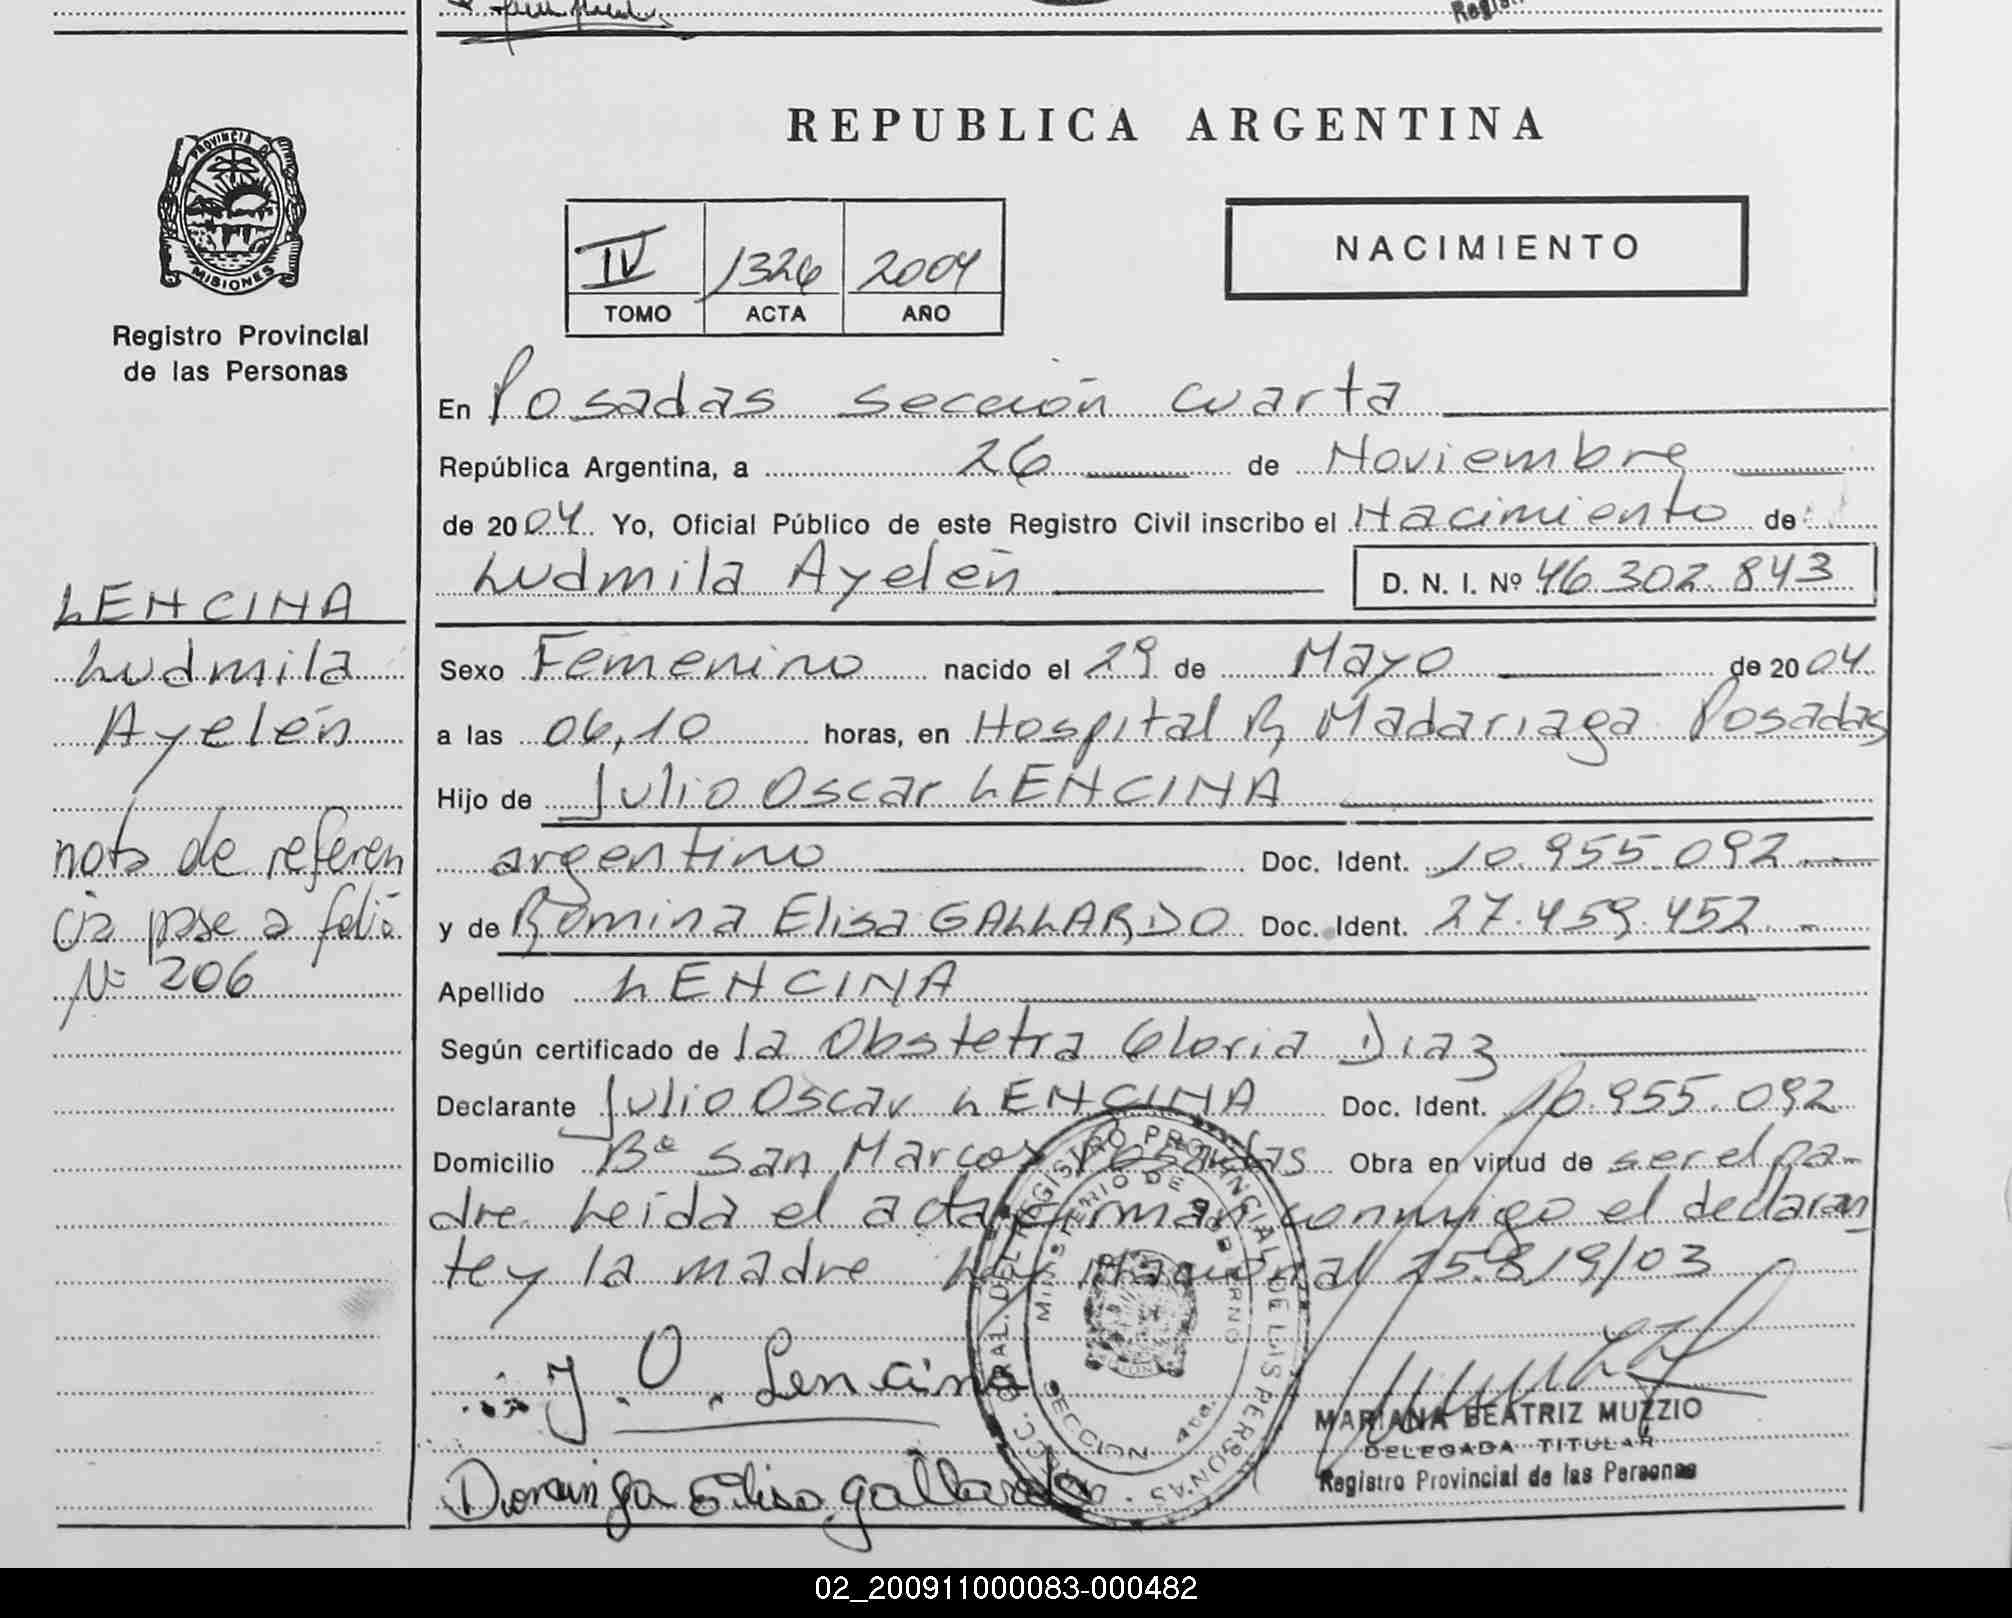 REPUBLICA ARGENTINA
PROVINCIA D
MISIONES
Registro Provincial
de las Personas
IV 1326 2004
TOMO ACTA AÑO
NACIMIENTO
En Posadas sección cuarta
República Argentina, a 26 de Noviembre
de 2004 Yo, Oficial Público de este Registro Civil inscribo el Nacimiento de
Ludmila Ayelén D. N. I. Nº 46.302.843
Sexo Femenino nacido el 29 de Mayo de 2004
a las 06,10 horas, en Hospital R, Madariaga Posadas
Hijo de Julio Oscar LENCINA
argentino Doc. Ident. 10.955.092
y de Romina Elisa GALLARDO Doc. Ident. 27.459.452
Apellido LENCINA
Según certificado de la Obstetra Gloria Diaz
Declarante Julio Oscar LENCINA Doc. Ident. 10.955.092
Domicilio Bº San Marcos Posadas Obra en virtud de ser el pa-
dre Leída el acta firman conmigo el declaran
te y la madre Ley Nacional 25.819/03
LENCINA
Ludmila
Ayelén
nota de referen
cia pase a folio
Nº 206
J. O. Lencina
Dominga Elisa gallardo
DIRECC. GRAL. DEL REGISTRO PROVINCIAL DE LAS PERSONAS
MINISTERIO DE GOBIERNO
SECCION 4ta.
MARIANA BEATRIZ MUZZIO
DELEGADA TITULAR
Registro Provincial de las Personas
02_200911000083-000482